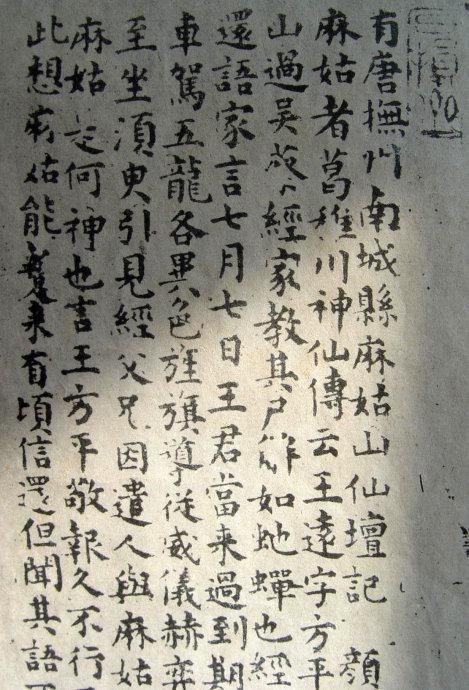 有唐撫州南城縣麻姑山仙壇記 顏
麻姑者葛稚川神仙傳云王遠字方平
山過吳蔡經家教其尸解如虵蟬也經
還語家言七月七日王君當来過到期
車駕五龍各異色旌旗導從威儀赫弈
至坐須臾引見經父兄因遣人與麻姑
麻姑是何神也言王方平敬報久不行
此想麻姑能蹔来有頃信還但聞其語